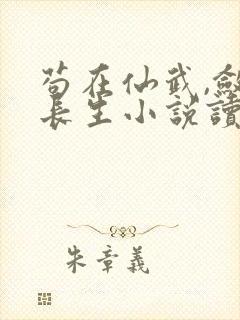 苟在仙武,斂
長生小說讀
朱章義